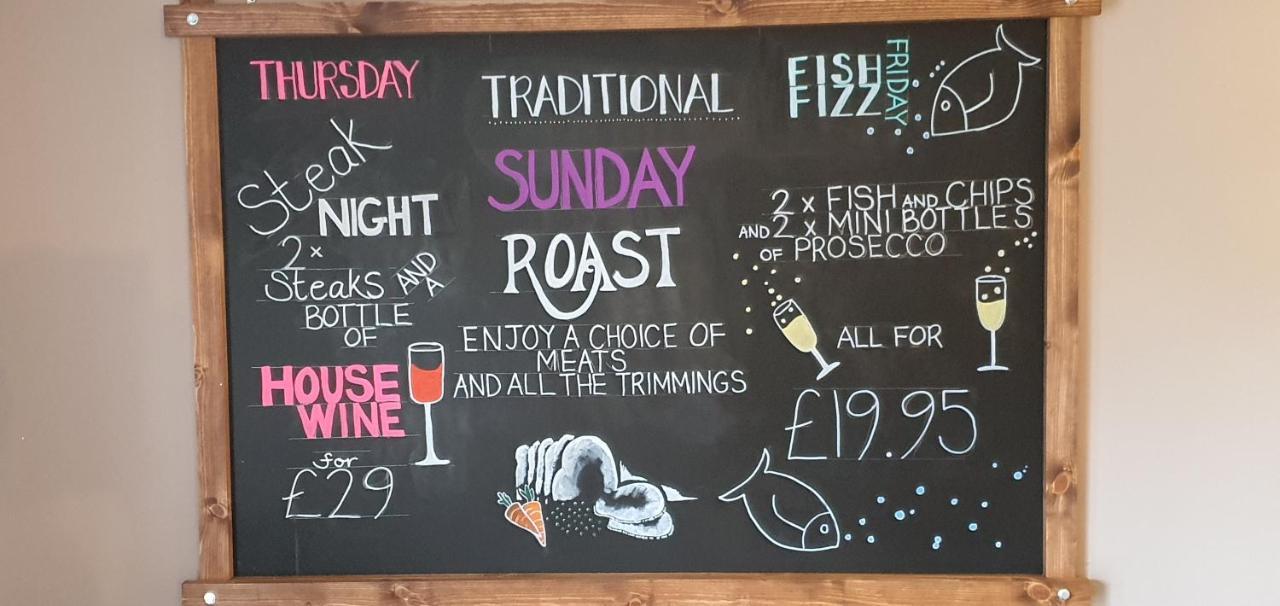 THURSDAY
Steak
NIGHT
2 x
Steaks AND A
BOTTLE
OF
HOUSE
WINE
for
£29
TRADITIONAL
SUNDAY
ROAST
ENJOY A CHOICE OF
MEATS
AND ALL THE TRIMMINGS
FISH
FIZZ
FRIDAY
2 x FISH AND CHIPS
AND 2 x MINI BOTTLES
OF PROSECCO
ALL FOR
£19.95